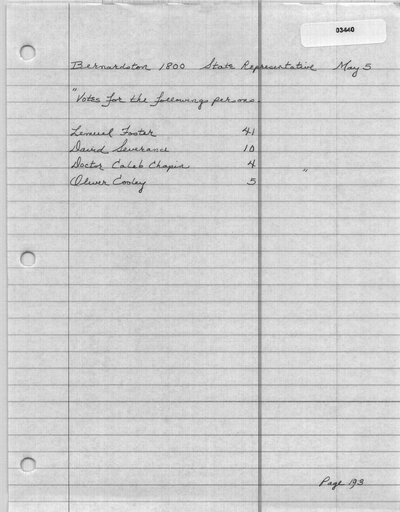 03440
Bernardston 1800 State Representative May 5
"Votes for the followings persons.
Lemuel Foster 41
David Severance 10
Doctor Caleb Chapin 4 "
Oliver Cooley 5
Page 193